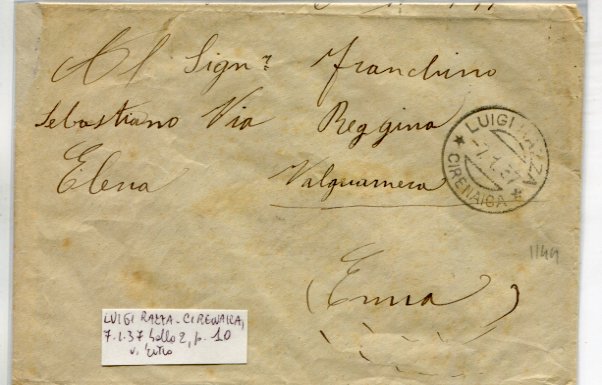 Al Sign.r Franchino
Sebastiano Via Reggina
Elena Valguarnera
(Enna)
LUIGI RAZZA
7.1.37
CIRENAICA
1144
LUIGI RAZZA - CIRENAICA,
7.1.37 bollo 2, p. 10
v. retro